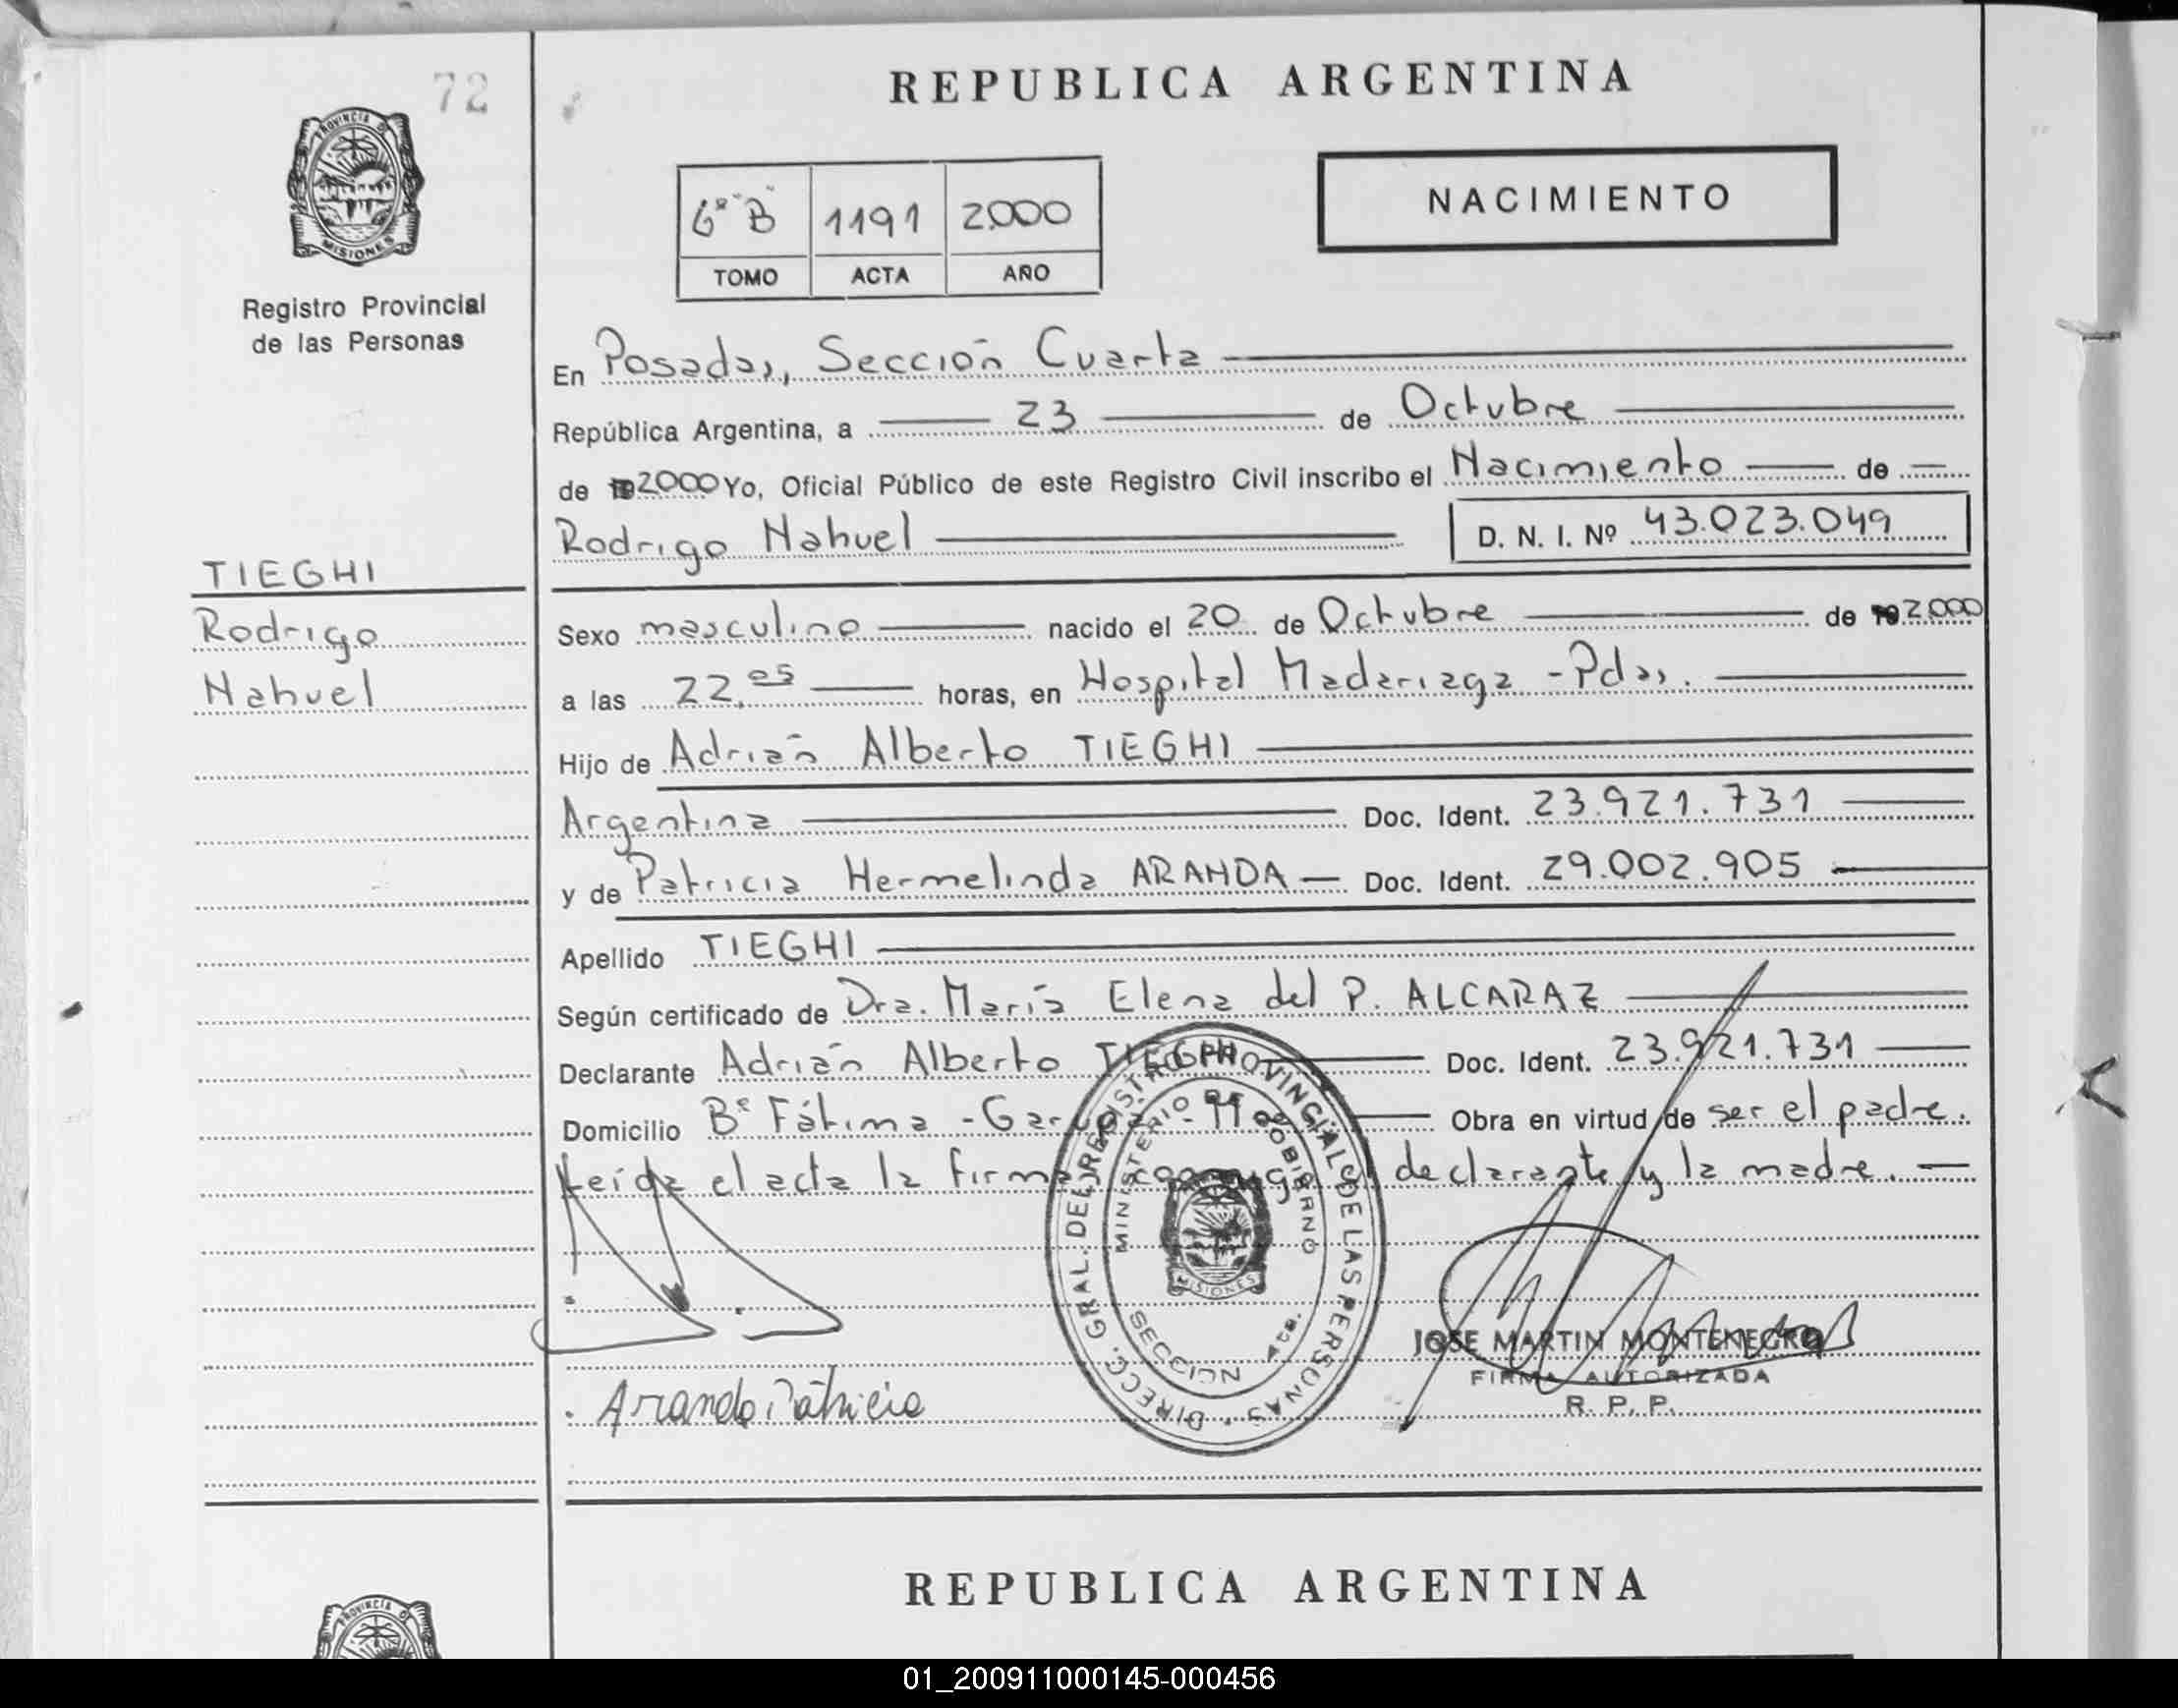 72
REPUBLICA ARGENTINA
PROVINCIA DE
MISIONES
NACIMIENTO
6º "B" 1191 2000
TOMO ACTA AÑO
Registro Provincial
de las Personas
En Posadas, Sección Cuarta
República Argentina, a 23 de Octubre
de 192000 Yo, Oficial Público de este Registro Civil inscribo el Nacimiento de
Rodrigo Nahuel D. N. I. Nº 43.023.049
TIEGHI
Rodrigo
Nahuel
Sexo masculino nacido el 20 de Octubre de 192000
a las 22,05 horas, en Hospital Madariaga - Pdas.
Hijo de Adrián Alberto TIEGHI
Argentina Doc. Ident. 23.921.731
y de Patricia Hermelinda ARANDA Doc. Ident. 29.002.905
Apellido TIEGHI
Según certificado de Dra. María Elena del P. ALCARAZ
Declarante Adrián Alberto TIEGHI Doc. Ident. 23.921.731
Domicilio Bº Fátima - Garupá - Obra en virtud de ser el padre.
Leída el acta la firman conmigo el declarante y la madre.
DIRECC. GRAL. DEL REGISTRO PROVINCIAL DE LAS PERSONAS
MINISTERIO DE GOBIERNO
MISIONES
SECCION 4ta.
JOSE MARTIN MONTENEGRO
FIRMA AUTORIZADA
R. P. P.
Aranda Patricia
REPUBLICA ARGENTINA
PROVINCIA DE
01_200911000145-000456